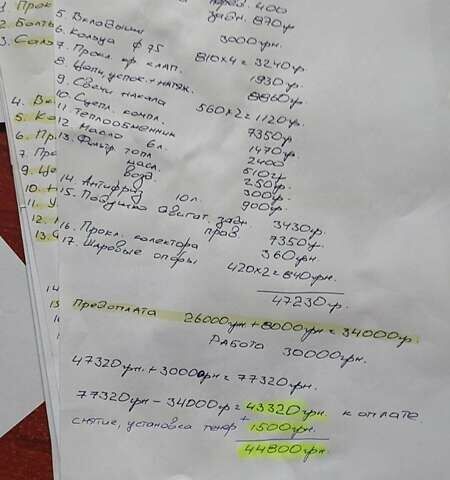 1. Прок
2. Болты
3. Саль
4. Вк
5. Ка
6. Пр
7. Пра
9. Це
10. +
11. У
12. М
13. Ф
перед. 400
задн. 870гр
5. Вкладыши 3000грн.
6. Кольца ф 75 810х4=3240гр
7. Прокл. кр клап. 1930гр.
8. Цепи, успок.+натяж. 8860гр
9. Свечи накала 560х2=1120гр.
10. Сцепл. компл. 7350гр
11. Теплообменник 1470гр.
12. Масло 6л. 2400
13. Фильтр топл 510гр
масл. 250гр.
возд. 300гр
14. Антифриз 10л. 900гр.
15. Подушка двигат. задн. 3430гр.
прав. 7350гр.
16. Прокл. колектора 360грн.
17. Шаровые опоры 420х2=840грн.
47230гр.
Предоплата 26000грн+8000грн=34000гр.
Работа 30000грн.
47320грн.+3000грн=77320грн.
77320грн-34000гр=43320грн. к оплате.
снятие, установка +1500грн.
44800грн.